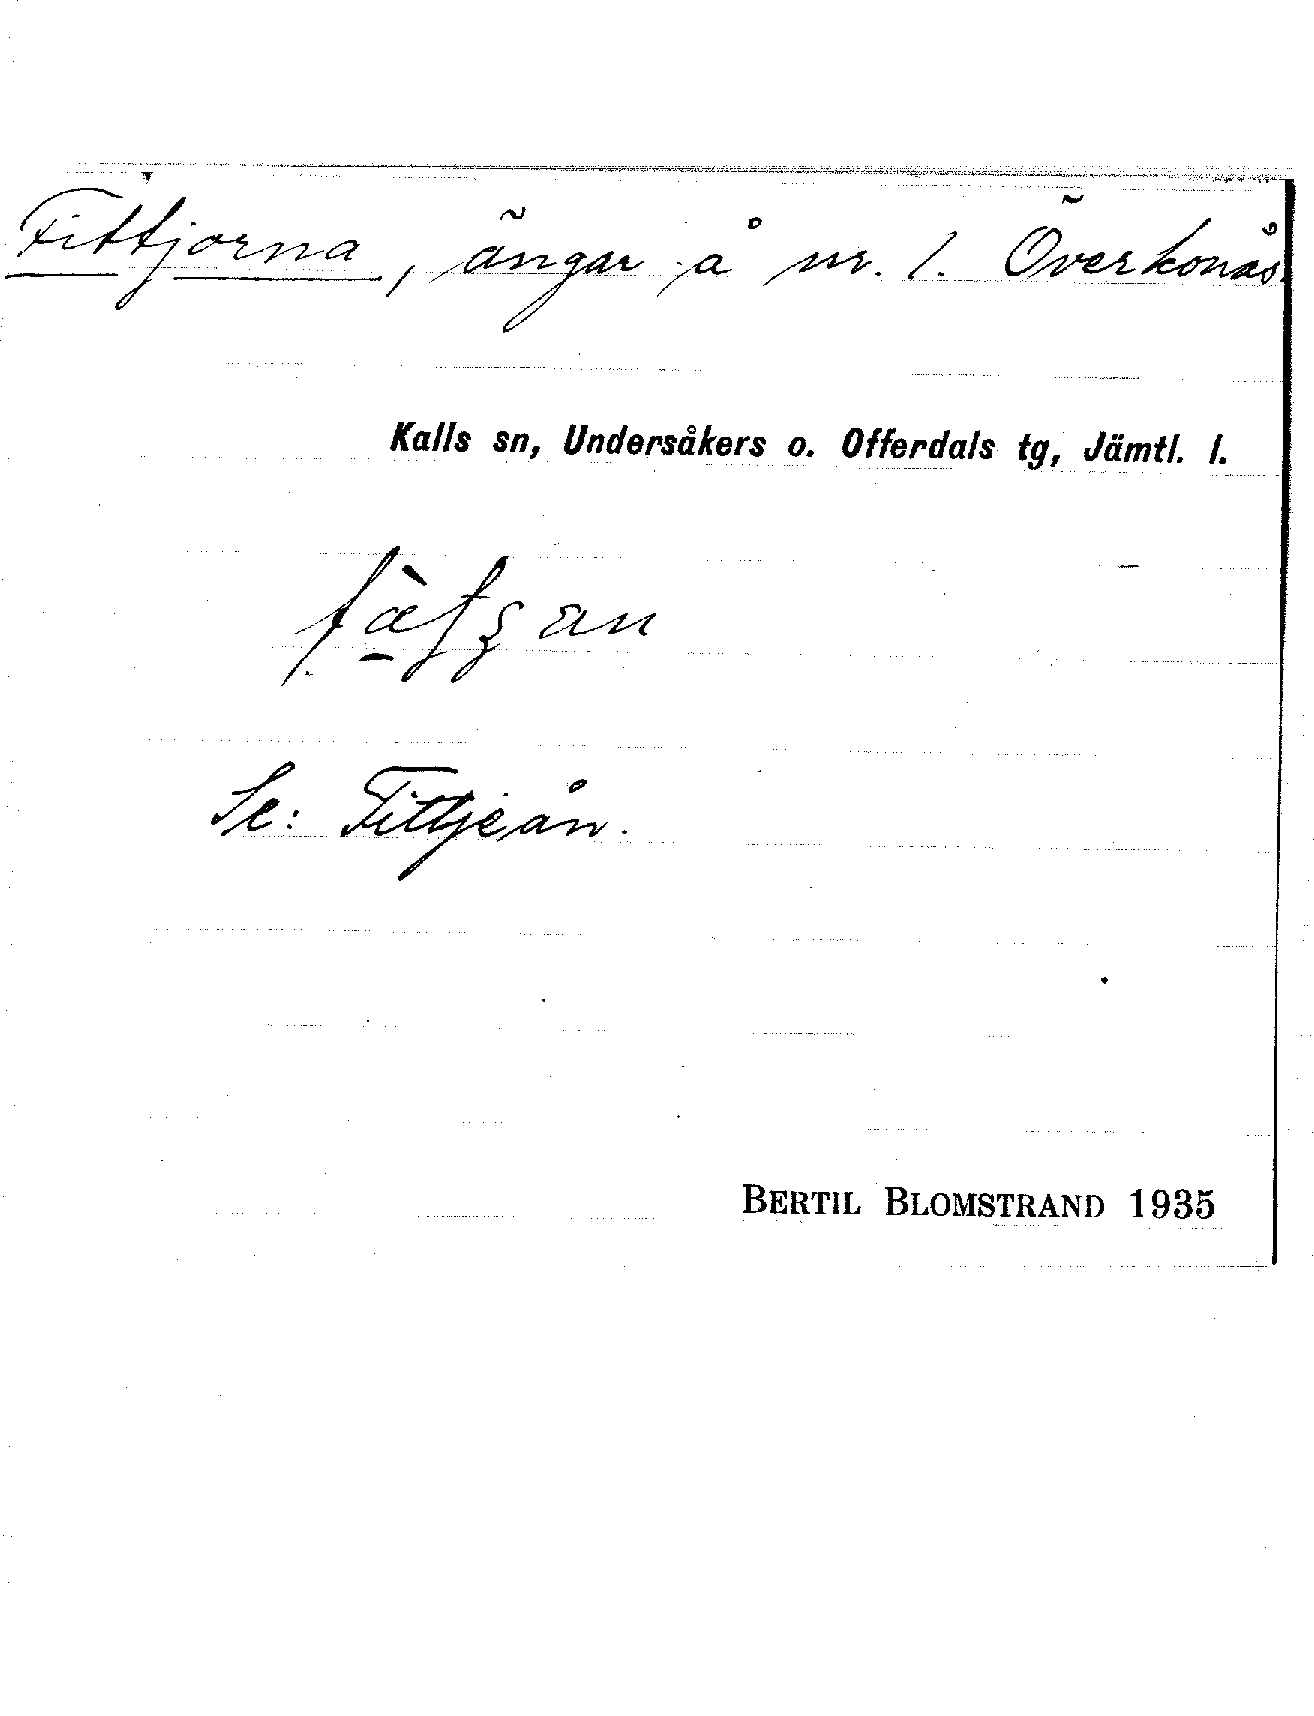 Fittjorna, ängar å nr. 1. Överkonäs.
Kalls sn, Undersåkers o. Offerdals tg, Jämtl. l.
Se: Fittjeån.
BERTIL BLOMSTRAND 1935